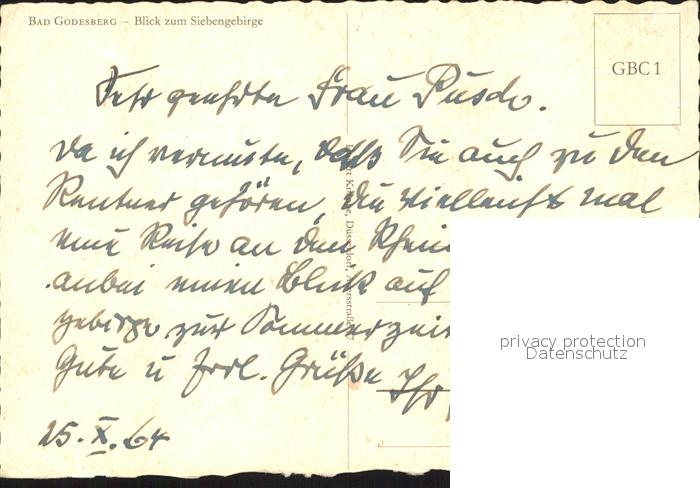 BAD GODESBERG – Blick zum Siebengebirge
GBC 1
Sehr geehrte Frau Pusch.
Da ich vermute, daß Sie auch zu den
Rentner gehören, die vielleicht mal
eine Reise an den Rhein
anbei einen Blick auf
gebirge zur Sommerzeit
Gute u frdl. Grüße Ihr
25.X.64
Düsseldorf,
privacy protection
Datenschutz